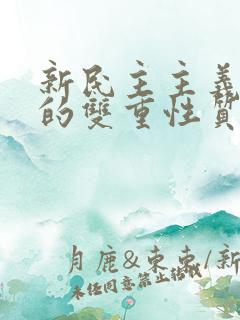 新民主主義
的雙重性質
月鹿&東東/新
未任同意禁止轉載